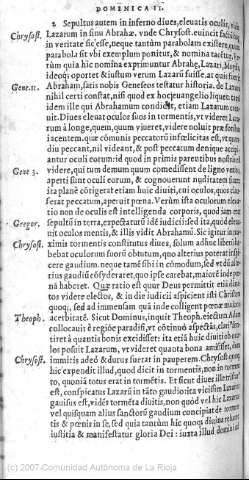 DOMENICA II.
2 Sepultus autem in inferno diues, eleuatis oculis, vidit
Chrysost. Lazarum in sinu Abrahæ, vnde Chrysost. euincit
in veritate sic esse, neque tantum parabolam existere, quia
parabola sit vbi exemplum ponitur, & nomina
rum quia hic nomina exprimuntur Abrahę, Lazari,
ideoq; oportet & iustum verum Lazarū fuisse. at quis fuerit
Gene.11. Abraham, satis nobis Geneseos testatur historia. de
nihil certi constat, nisi quod ex hoc euangelio liquet:
idem ille qui Abrahamum condidit, etiam Lazarum
uit. Diues eleuat oculos suos in tormentis, vt videret
rum à longe, quem, quum viueret, videre noluit
iacentem. quæ omnium peccatorū infelicitas est, vt
diu peccant, nil videant, & post peccatum denique
antur oculi eorum: id quod in primis parentibus nostris
Gene 3. videre, qui tum demum quum comedissent de ligno
aperti sunt oculi eorum, & cognouerunt nuditatem suam.
ita planè cōtigerat etiam huic diuiti, cui oculos, quos
serat peccatum, aperuit pœna. Verùm ista oculorum
tio non de oculis est intelligenda corporis, quod iam
Gregor. sepulti in terra, expectaturi idē iudicij sed ita, quod
uit oculos mentis, & illis vidit Abrahamū. Sic igitur in
Chrysost. ximis tormentis constitutus diues, solum adhuc
bebat oculorum fuori obtutum, quo alterius poterat
cere gaudium. neque tamē sibi in cōmodum, sed vt
tius gaudiū cōsyderaret, quo ipse carebat, maiorē inde
nā haberet. Quæ ratio est quur Deus permittit etiā
tos videre electos, & in die iudicij aspicient isti Christum
quoq;, sed ad immensam quā inde colligent pœnæ maioris
Theoph. acerbitatē. Sicut Dominus, inquit Theoph. eiectum Adam
collocauit è regiōe paradisi, vt cōtinuò aspectās,
teret à quantis bonis excidisset: ita etiā huic diuiti
posuit Lazarum, vt videret quanta bona amisisset, cùm
Chrysost. immitis adeò & durus fuerat in pauperem. Chrysost.
hic expendit illud, quod dicit in tormentis, non in
to, quonià totus erat in tormētis. Et sicut diues ille
est, conspicatus Lazarū in tāto gaudio: ita vicissim Lazarus
gauisus est, vidēs tormēta diuitis, non quòd vel hic
vel quisquam alius sanctorū gaudium concipiat de
tis & pœnis in se, sed quia tantùm hic quoq; diuina
iustitia & manifestatur gloria Dei: iuxta illud
(c) 2007 Comunidad Autónoma de La Rioja